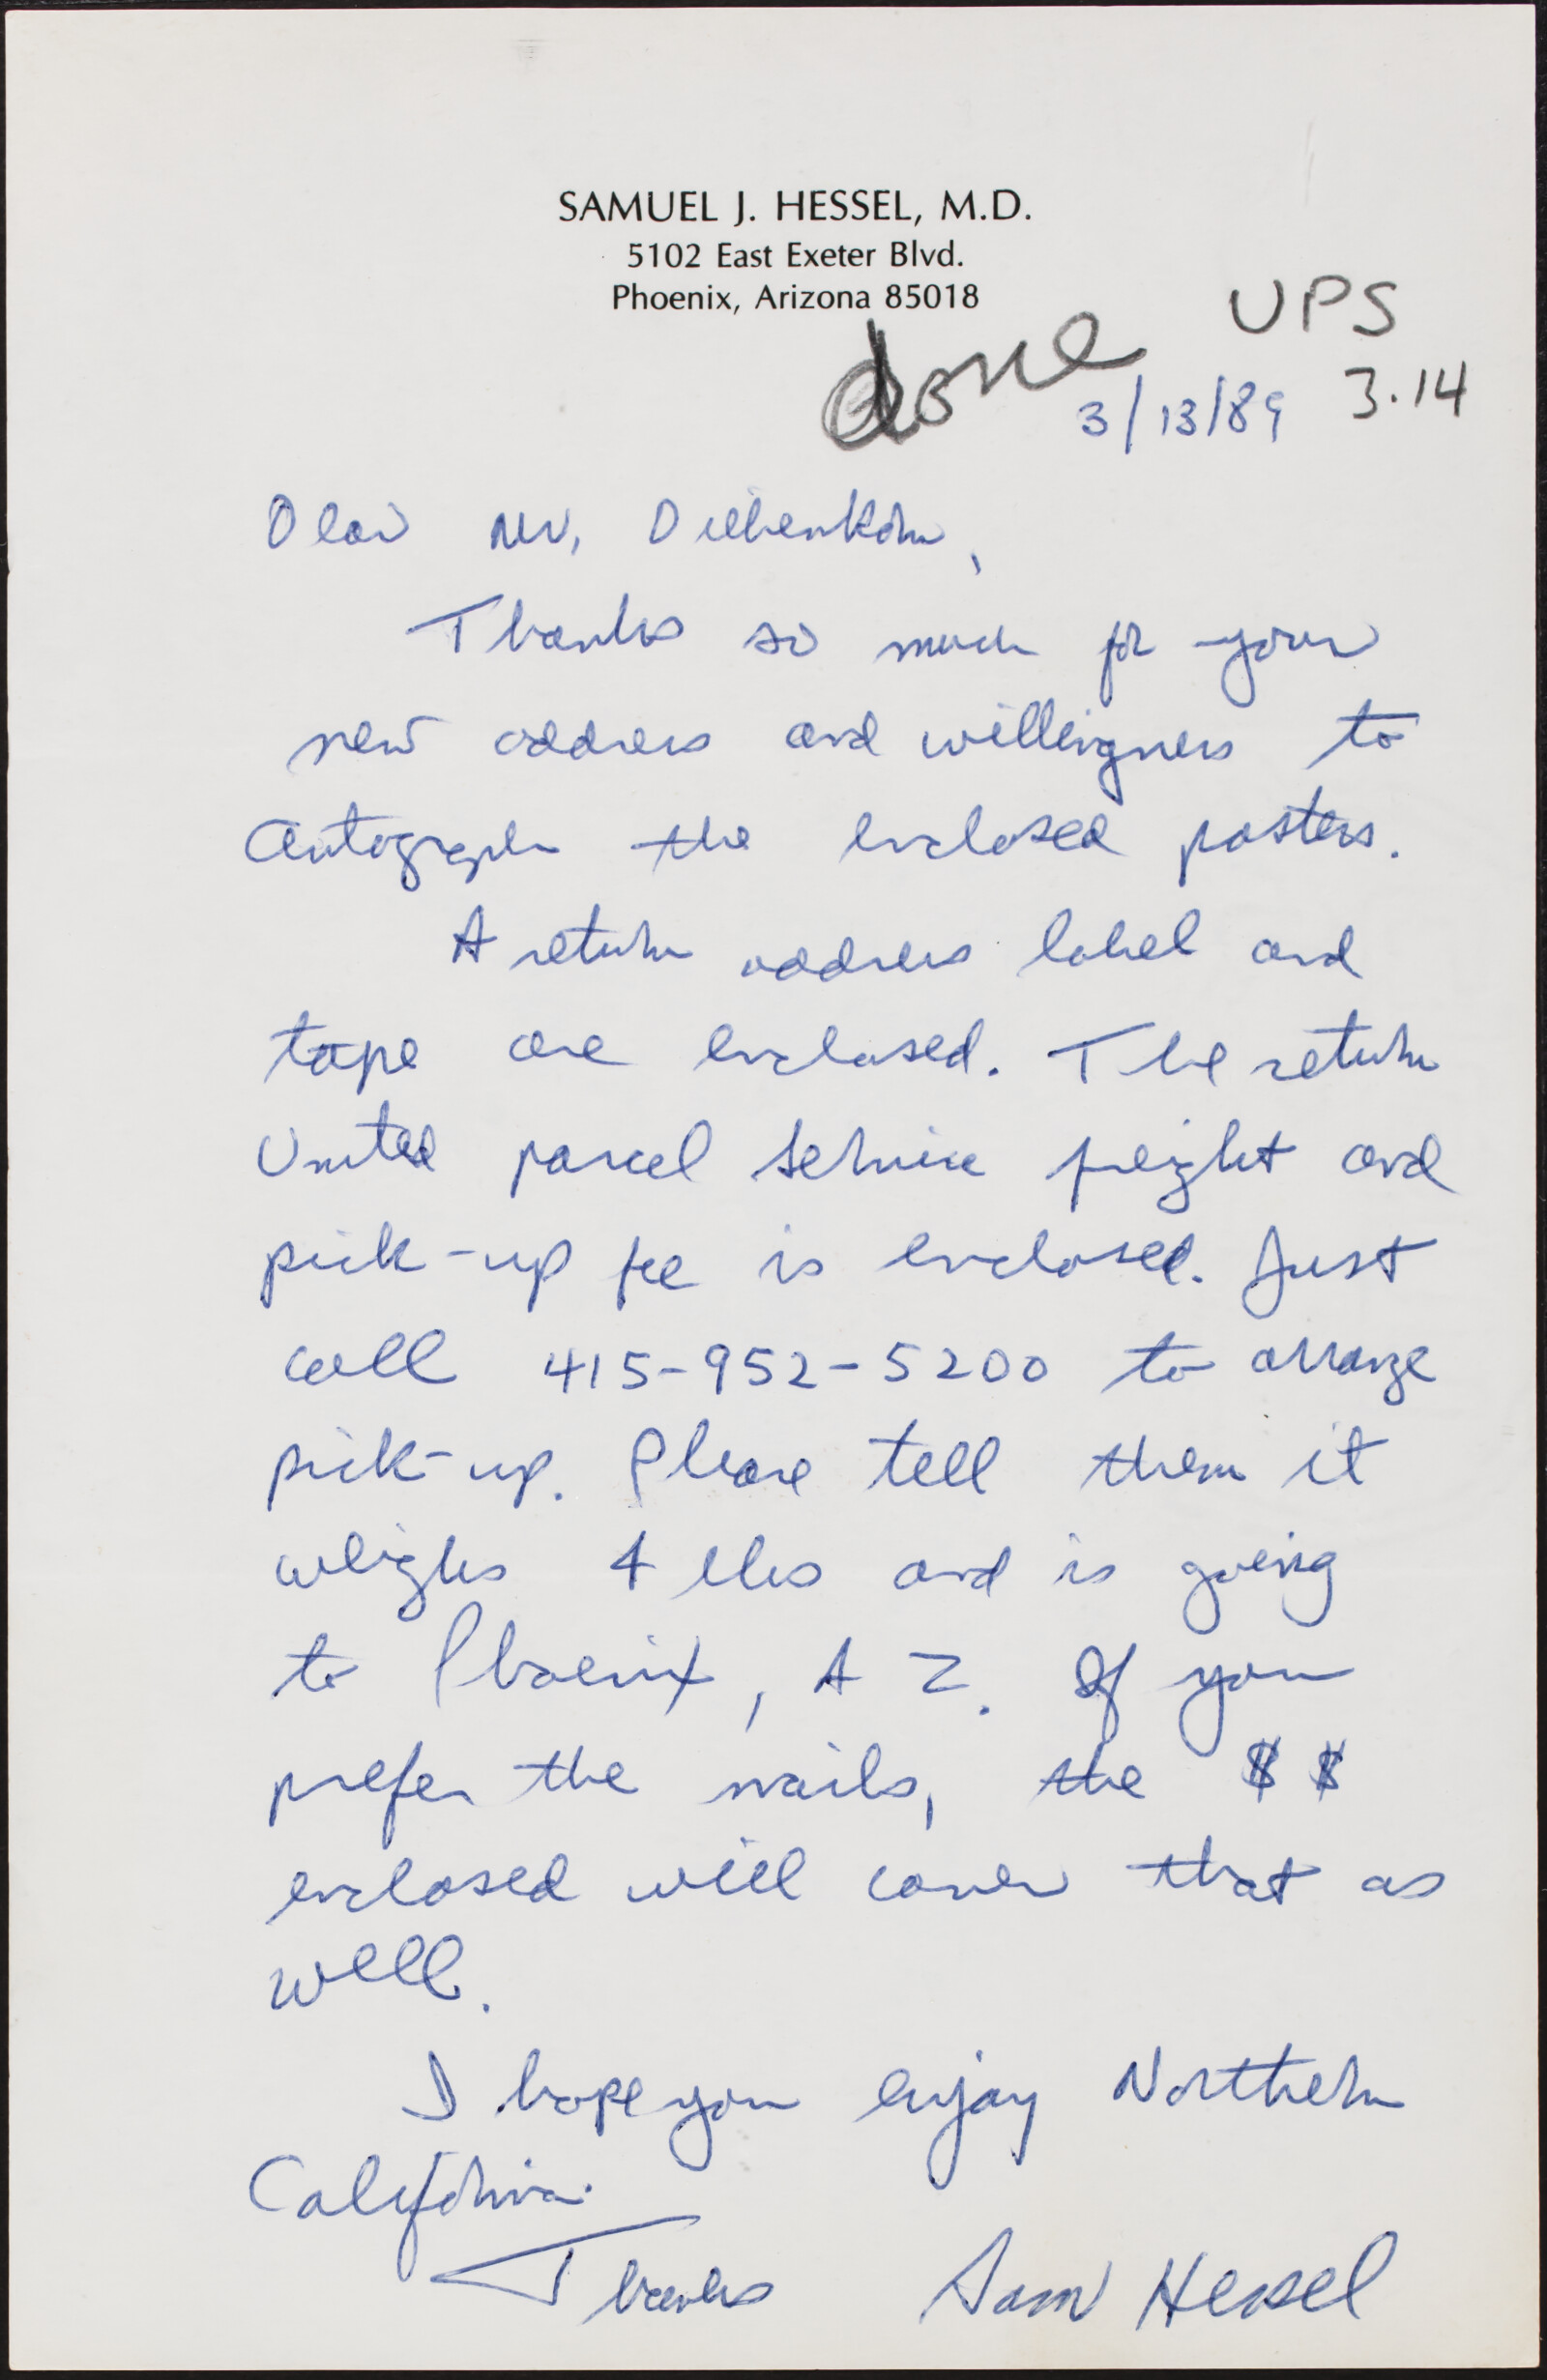 SAMUEL J. HESSEL, M.D.
5102 East Exeter Blvd.
Phoenix, Arizona 85018
UPS
done
3/13/89 3.14
Dear Mr. Diebenkorn,
Thanks so much for your
new address and willingness to
autograph the enclosed posters.
A return address label and
tape are enclosed. The return
United parcel service freight and
pick-up fee is enclosed. Just
call 415-952-5200 to arrange
pick-up. Please tell them it
weighs 4 lbs and is going
to Phoenix, AZ. If you
prefer the mails, the $$
enclosed will cover that as
well.
I hope you enjoy Northern
California.
Thanks Sam Hessel